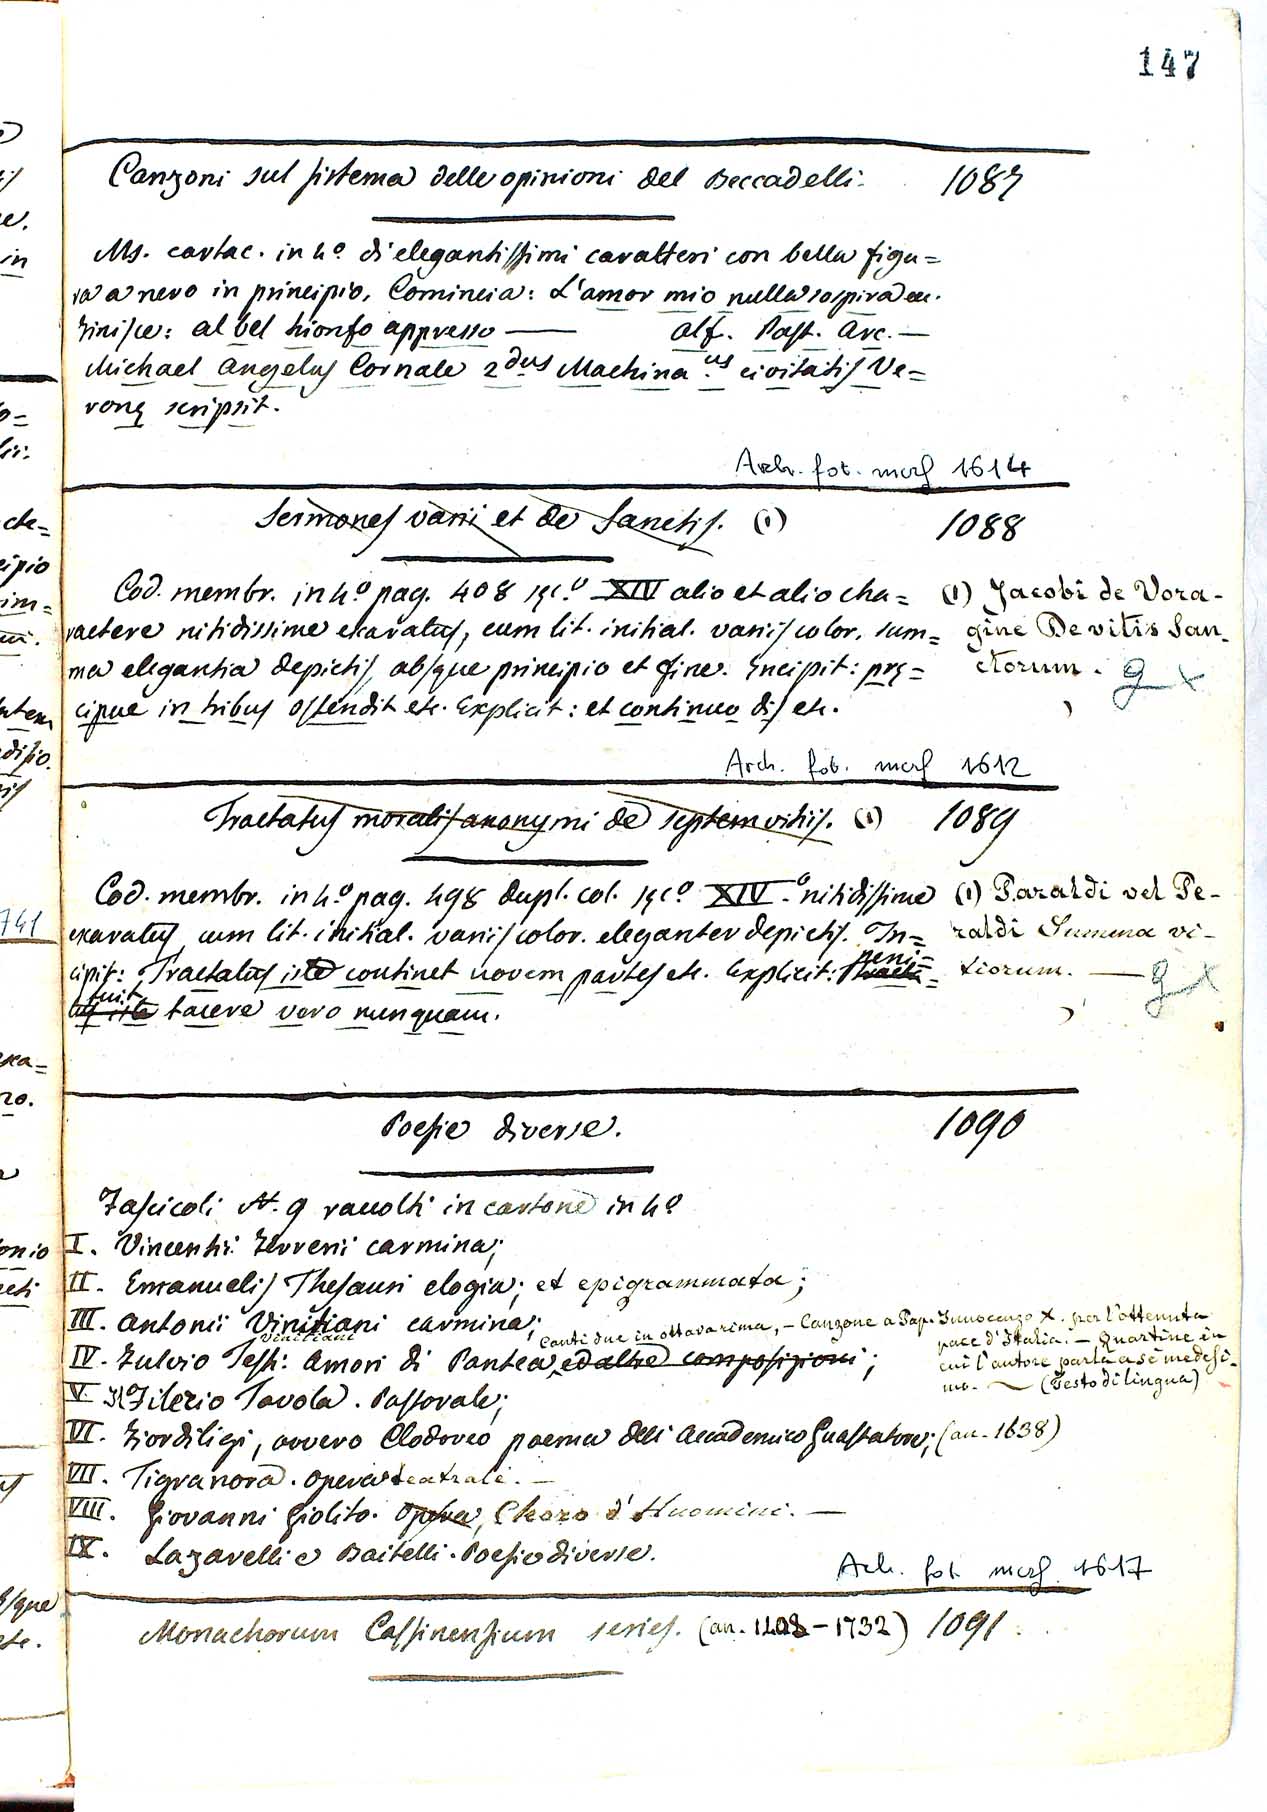 147
Canzoni sul sistema delle opinioni del Beccadelli. 1087
Ms. cartac. in 4º di elegantissimi caratteri con bella figu=
ra a nero in principio. Comincia: L'amor mio nulla sospira ec.
Finisce: al bel trionfo appresso — Alf. Past. Arc. —
Michael Angelus Cornale 2dus Machina.us civitatis Ve=
ronę scripsit.
Arch. fot. mcrf 1614
Sermones varii et de Sanctis. (1) 1088
Cod. membr. in 4º pag. 408 sęc.º XIV alio et alio cha=
ractere nitidissime exaratus, cum lit. initial. variis color. sum=
ma elegantia depictis, absque principio et fine. Incipit: prę=
cipue in tribus ostendit etc. Explicit: et continuo dis etc.
(1) Jacobi de Vora-
gine De vitis San-
ctorum. g x
Arch. fot. mcrf 1612
Tractatus moralis anonymi de septem vitiis. (1) 1089
Cod. membr. in 4º pag. 498 dupl. col. sęcº XIV.º nitidissime
exaratus, cum lit. initial. variis color. eleganter depictis. In=
cipit: Tractatus iste continet novem partes etc. Explicit: Tractu= peni=
us iste tuit tacere vero nunquam.
(1) Paraldi vel Pe-
raldi Summa vi-
tiorum. — g x
Poesie diverse. 1090
Fascicoli N. 9 raccolti in cartone in 4º
I. Vincentii Ferrerii carmina;
II. Emanuelis Thesauri elogia; et epigrammata;
III. Antonii Vinitiani carmina;
Vinitiani
Canti due in ottava rima, – Canzone a Pap. Innocenzo X. per l'ottenuta
pace d'Italia. – Quartine in
cui l'autore parla a sè medesi-
mo. — (Testo di lingua)
IV. Fulvio Testi: Amori di Pantea, ed altre composizioni;
V. Il Filerio Favola. Pastorale;
VI. Fiordiligi, ovvero Clodoveo poema dell' Accademico Guastatore; (an. 1638)
VII. Tigranora. opera teatrale. —
VIII. Giovanni Giolito. Opera, Choro d'Huomini. —
IX. Lazarelli e Baitelli. Poesie diverse.
Arch. fot. mcrf. 1617
Monachorum Cassinensium series. (an. 1408–1732) 1091.